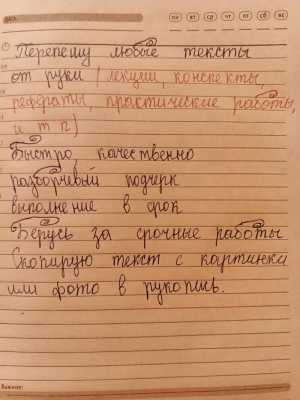 пн вт ср чт пт сб вс
Перепишу любые тексты
от руки (лекции, конспекты,
рефераты, практические работы,
и т п)
Быстро, качественно
разборчевый подчерк
выполнение в срок
Берусь за срочные работы
Скопирую текст с картинки
или фото в рукопись.
Важное: